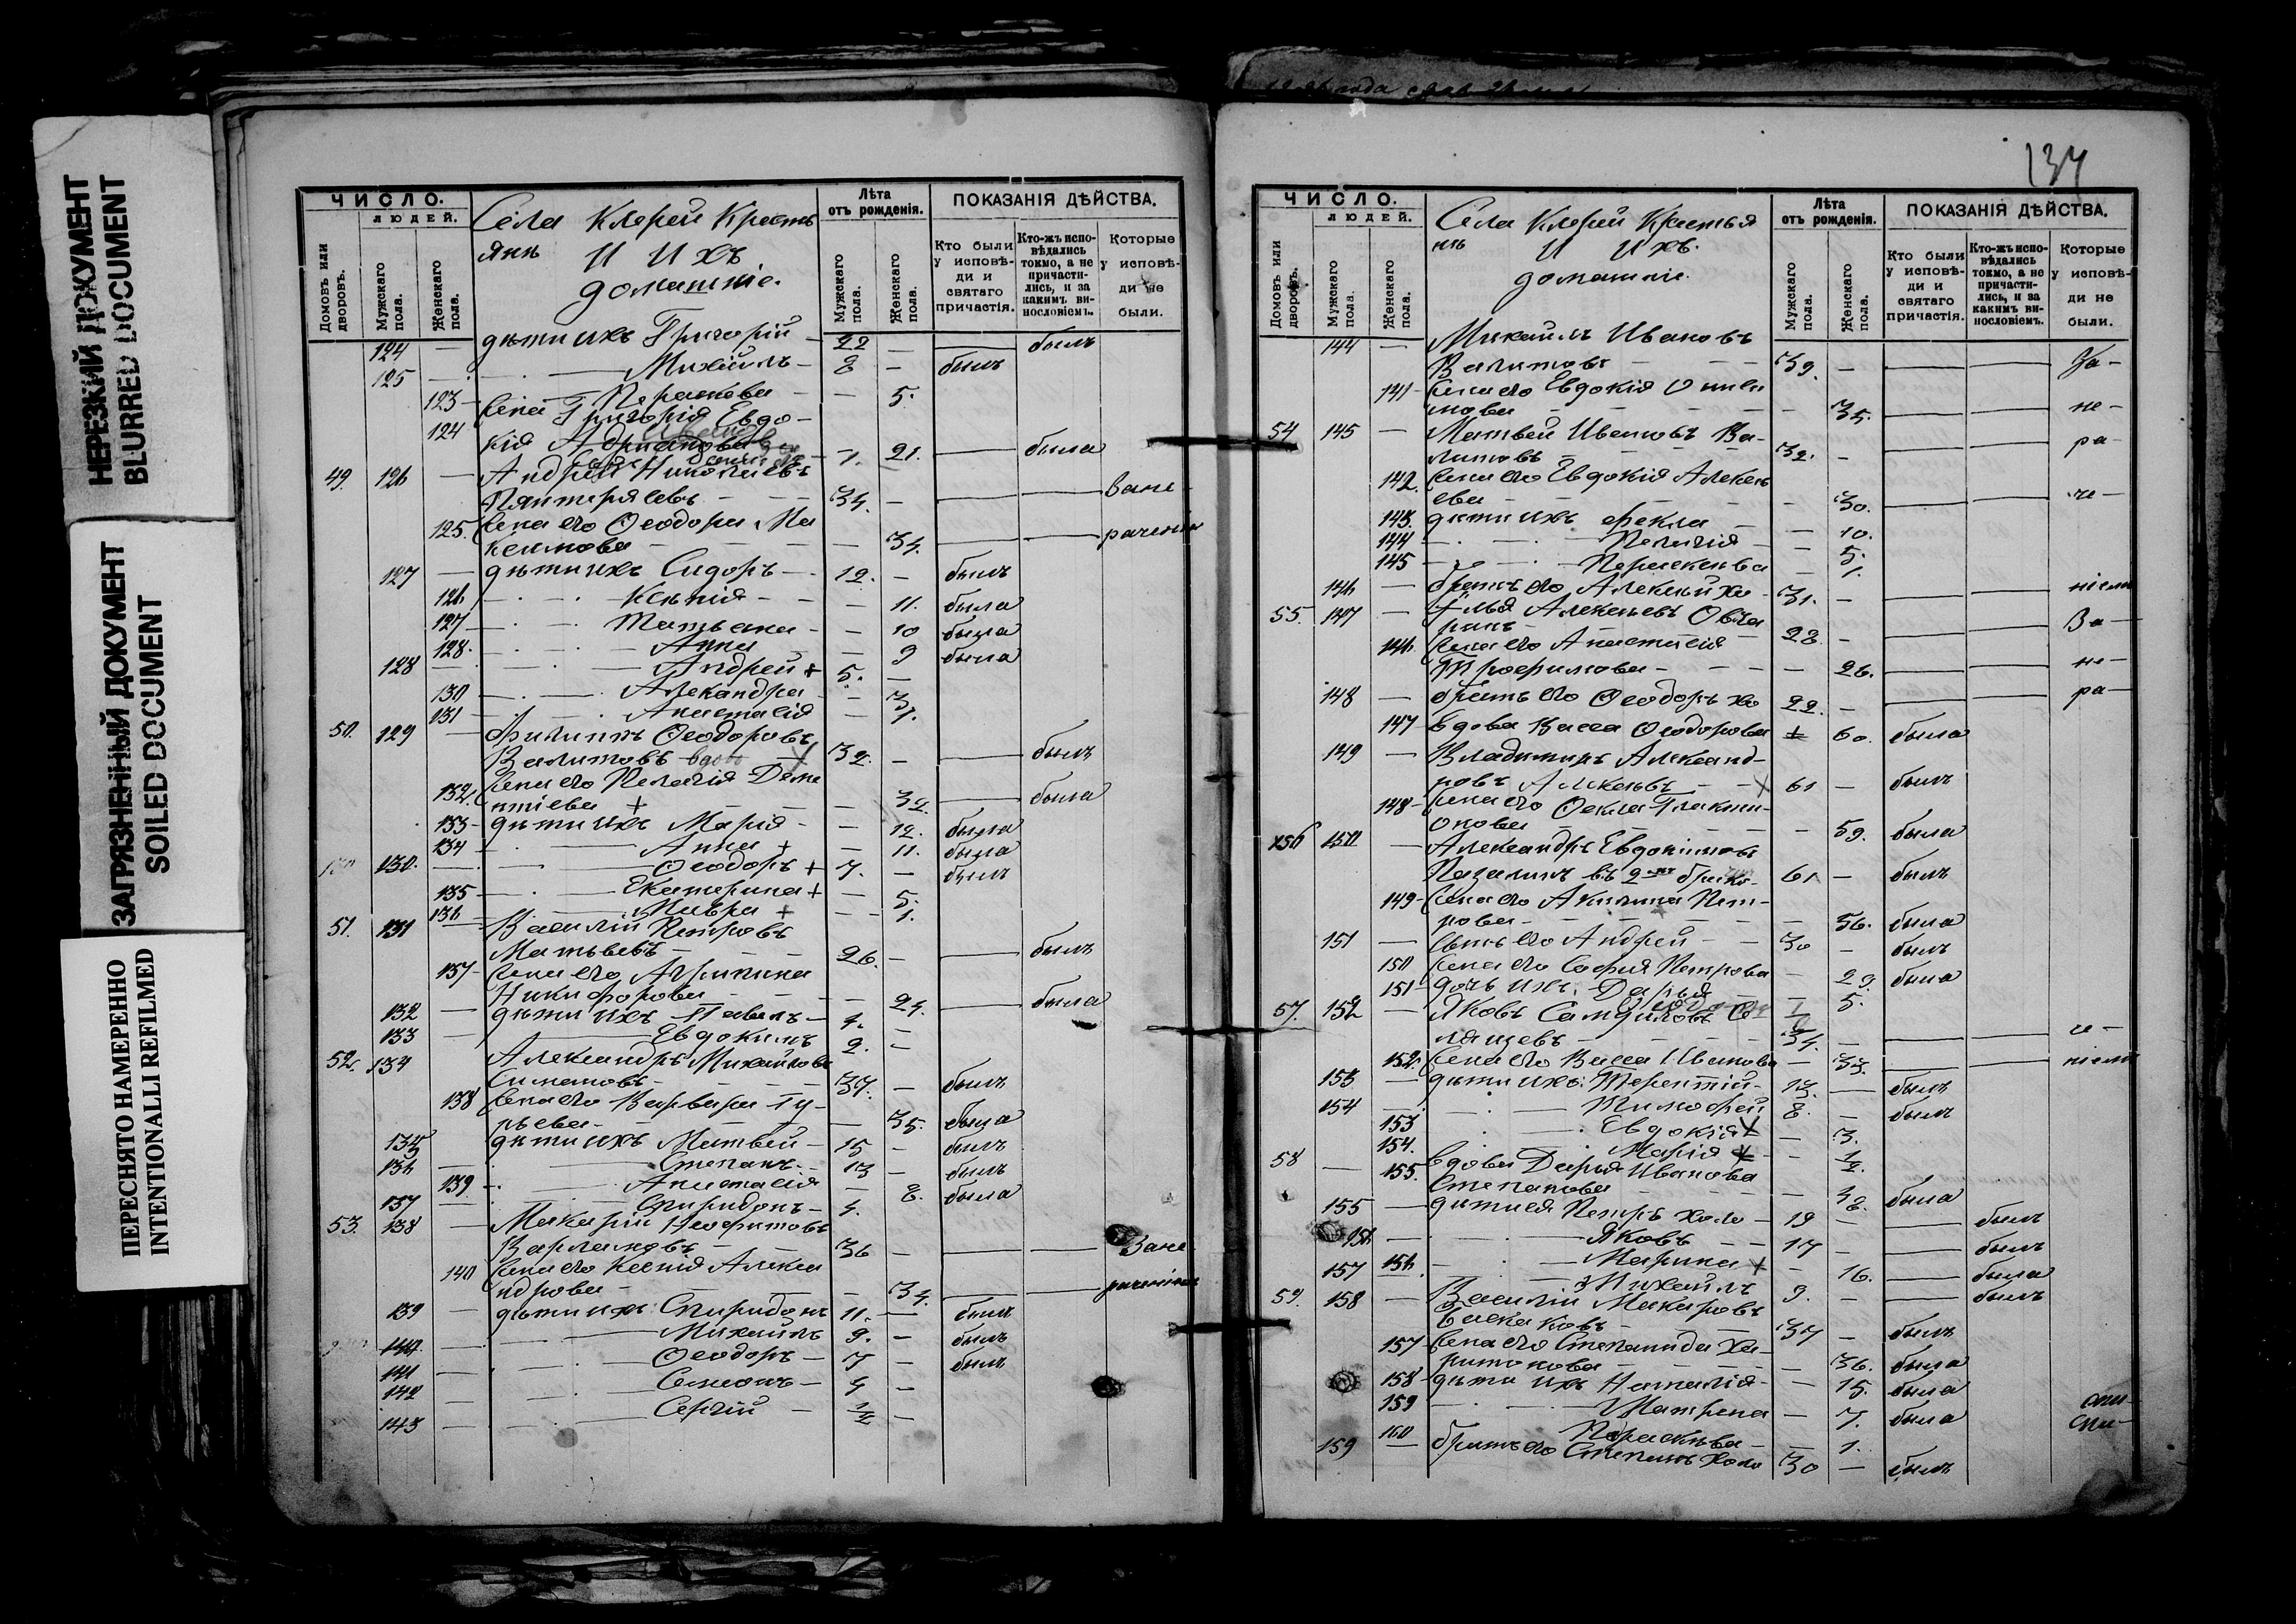 НЕРЕЗКИЙ ДОКУМЕНТ
BLURRED DOCUMENT
ЗАГРЯЗНЕННЫЙ ДОКУМЕНТ
SOILED DOCUMENT
ПЕРЕСНЯТО НАМЕРЕННО
INTENTIONALLI REFILMED
ЧИСЛО.
ЛЮДЕЙ.
Домовъ или дворовъ.
Мужскаго пола.
Женскаго пола.
Села Клерей Кресть
янъ И Ихъ
домашніе.
Лѣта
отъ рожденія.
Мужскаго пола.
Женскаго пола.
ПОКАЗАНІЯ ДѢЙСТВА.
Кто были у исповѣди и святаго причастія.
Кто-жъ исповѣдались токмо, а не причастились, и за какимъ винословіемъ.
Которые у исповѣди не были.
124 — дѣти ихъ Григорій — 22 — — былъ
125 — Михаилъ — 8 — былъ
123 — Параскева — — 5.
Жена Григорія Евдо-
124 кія — 21. — была
49. 126 — Андрей Николаевъ
34. — — — Зане
125. Жена его Ѳеодора Ма
ксимова — — 34. — — раченіи
127 — дѣти ихъ Сидоръ — 12. — былъ
126. — Ксенія — — 11. была
127 — Татьяна — — 10 была
128. — Анна — 9 была
128 — Андрей + 5. —
130 — Александра — 3
131 — Анастасія — 1.
50. 129 — Филиппъ Ѳеодоровъ
Валитовъ вдовъ 32. — — былъ
132. Жена его Пелагія Деме
нтіева + — 32. — была
133 — дѣти ихъ Марія — — 12. была
134 — Анна + — 11. была
130. — Ѳеодоръ + 7. — былъ
135 — Екатерина + — 5.
136 — Мавра + — 1.
51. 131 — Василій Петровъ
Матвѣевъ — 26. — — былъ
137 — Жена его Агрипина
Никифорова — — 24. — была
132 — дѣти ихъ Павелъ — 4. —
133 — Евдокимъ 2. —
52. 134 Александръ Михаиловъ
Симановъ — 37. — былъ
138 Жена его Варвара Гу-
рьева — — 35. была
135 дѣти ихъ Матвей — 15 — былъ
136 — Степанъ — 13 — былъ
139 — Анастасія — 8. была
137 — Спиридонъ — 4.
53. 138 — Макарій Неофитовъ
Варламовъ — 36 — — — Зане
140 Жена его Ксенія Алекса
ндрова — — 34. — — раченіи
139 — дѣти ихъ: Спиридонъ 11. — былъ
140. — Михаилъ 9. — былъ
141 — Ѳеодоръ — 7 — былъ
142 — Симеонъ — 4 —
143 — Сергій — 1/2 —
134
ЧИСЛО.
ЛЮДЕЙ.
Домовъ или дворовъ.
Мужскаго пола.
Женскаго пола.
Села Клерей Крестья
нъ И Ихъ.
домашніе.
Лѣта
отъ рожденія.
Мужскаго пола.
Женскаго пола.
ПОКАЗАНІЯ ДѢЙСТВА.
Кто были у исповѣди и святаго причастія.
Кто-жъ исповѣдались токмо, а не причастились, и за какимъ винословіемъ.
Которые у исповѣди не были.
144 — Михаилъ Ивановъ
Валитовъ — 39. — — — За-
141 — Жена его Евдокія
— 35. — — не-
54 145 — Матвей Ивановъ Ва-
литовъ — 32. — — — ра-
142. Жена его Евдокія Алексѣ
ева — — 30. — — че-
143. дѣти ихъ Фекла — — 10.
144 — Пелагія — — 5.
145 — Параскева — 1.
146 — братъ его Алексѣй хо- 31. — — — ніемъ
55. 147 — Илья Алексѣевъ
28 — — — За-
146. Жена его Анастасія
Трофимова — — 26. — — не-
148 — братъ его Ѳеодоръ хо 22. — — — ра-
147 — вдова Васса Ѳеодорова 60. была
149 — Владимиръ Александ-
ровъ Алексѣевъ — 61 — былъ
148 — Жена его Ѳекла Галакти-
онова — — 59. была
56 150 — Александръ Евдокимовъ
въ 2мъ бракѣ. 61 — былъ
149 — Жена его Акилина Пет-
рова — — 56. была
151 — сынъ его Андрей — 30 — былъ
150 Жена его Софія Петрова — 29. была
151 — дочь ихъ: Дарья — 5.
57. 152 — Яковъ
34. — — — че-
152. Жена его Васса Иванова — 33. — — ніемъ
153 — дѣти ихъ: Терентій — 13. — былъ
154 — Тимофей 8. — былъ
153 — Евдокія — 3.
154. — Марія — 1/2.
58 — 155. вдова Дарья Иванова
Степанова — 48. была
155 — дѣти ея Петръ холо — 19 — — былъ
156 — Яковъ — 17 — — былъ
156. — Марина + — 16. — была
157 — Михаилъ 9. — — былъ
59. 158 — Василій Макаровъ
37 — былъ
157 Жена его Степанида Ха-
ритонова — — 36. была
158 — дѣти ихъ Наталія — — 15. была
159 — Матрена — 7. была
160 Параскева — — 1.
159 — братъ его Степанъ холо 30 — былъ